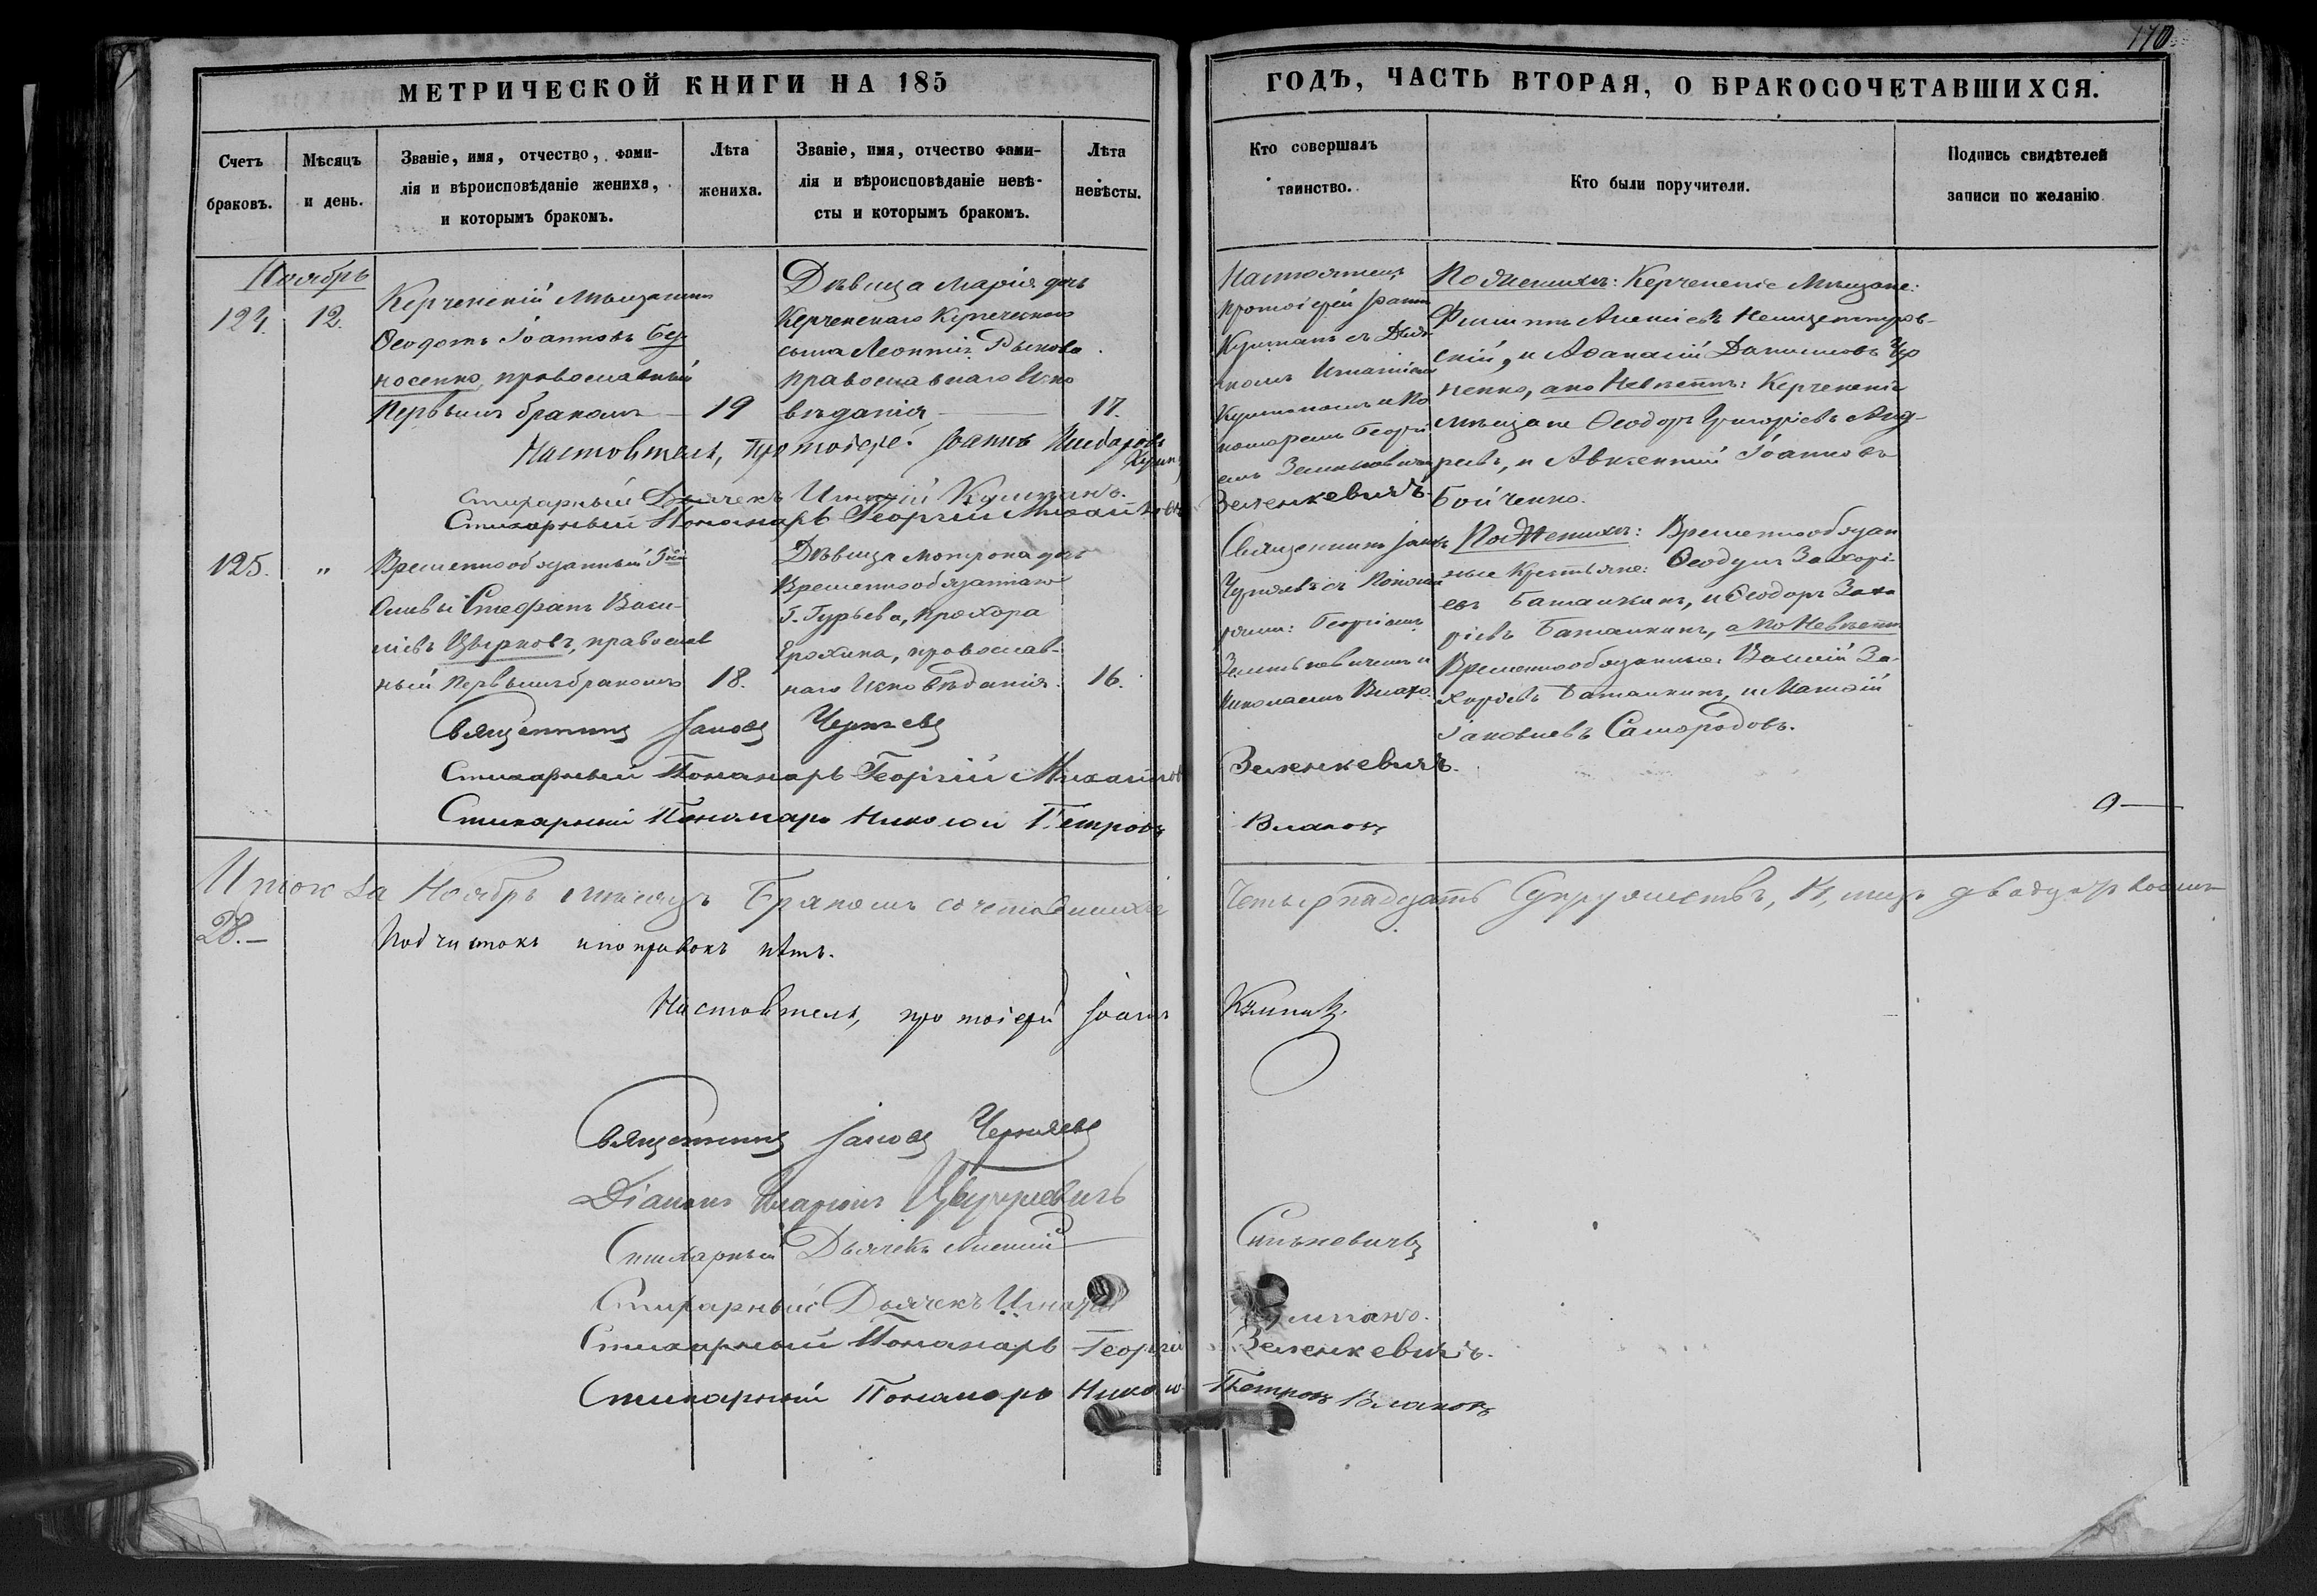 170
МЕТРИЧЕСКОЙ КНИГИ НА 185
ГОДЪ, ЧАСТЬ ВТОРАЯ, О БРАКОСОЧЕТАВШИХСЯ.
Счетъ
браковъ.
Мѣсяцъ
и день.
Званіе, имя, отчество, фами-
лія и вѣроисповѣданіе жениха,
и которымъ бракомъ.
Лѣта
жениха.
Званіе, имя, отчество фами-
лія и вѣроисповѣданіе невѣ-
сты и которымъ бракомъ.
Лѣта
невѣсты.
Кто совершалъ
таинство.
Кто были поручители.
Подпись свидѣтелей
записи по желанію
Ноябрь
124. 12.
Керченскій Мѣщанинъ
Ѳеодотъ Іоанновъ
православный
Первымъ бракомъ — 19
Дѣвица Марія дочь
Керченскаго Купеческаго
сына Леонтія Рыкова
православнаго Испо
вѣданія — 17.
Настоятель
протоіерей Іоаннъ
Кушпанъ съ
Игнатіемъ
Георгі
емъ
По Женихѣ: Керченскіе Мѣщане:
Филиппъ
скій, и Аѳанасій Даниловъ Чер
ненко, а по Невѣстѣ: Керченскіе
мѣщане Ѳеодоръ Григорьевъ Анд-
реевъ, и Авксентій Іоанновъ
Бойченко.
Настоятель, протоіерей Іоаннъ
Стихарный Дьячекъ Игнатій Кушпанъ.
Стихарный Пономарь Георгій Михайловъ Зеленкевичъ
125. "
Временнообязанный Гна
Стефанъ Васи-
ліевъ Цвѣрковъ, православ
ный первымъ бракомъ 18.
Дѣвица Матрона дочь
Временнообязаннаго
Г. Гурьева, Прохора
Ерохина, православ-
наго Исповѣданія. 16.
Священникъ Іаковъ
Чернявъ съ Понома
рями: Георгіемъ
Зеленкевичемъ и
Николаемъ Влахо.
По Женихѣ: Временнообязан
ные Крестьяне: Ѳеодулъ Захарі-
евъ Баташкинъ, и Ѳеодоръ Заха
ріевъ Баташкинъ, а по Невѣстѣ
Временнообязанные: Василій За-
харіевъ Баташкинъ, и Матѳій
Іаковлевъ Самородовъ.
Священникъ Іаковъ Чернявъ
Стихарный Пономарь Георгій Михайловъ Зеленкевичъ.
Стихарный Пономарь Николай Петровъ Влаховъ
Итого за Ноябрь мѣсяцъ Бракомъ сочетавшихся Четырнадцать Супружествъ, И, лицъ двадцать восемь
28.—
Подчистокъ и поправокъ нѣтъ.
Настоятель, протоіерей Іоаннъ Кушпанъ.
Священникъ Іаковъ Чернявъ
Діаконъ Иларіонъ
Стихарный Дьячекъ Алексій Синькевичъ
Стихарный Дьячекъ Игнатій Кушпанъ.
Стихарный Пономарь Георгій Зеленкевичъ.
Стихарный Пономарь Николай Петровъ Влаховъ